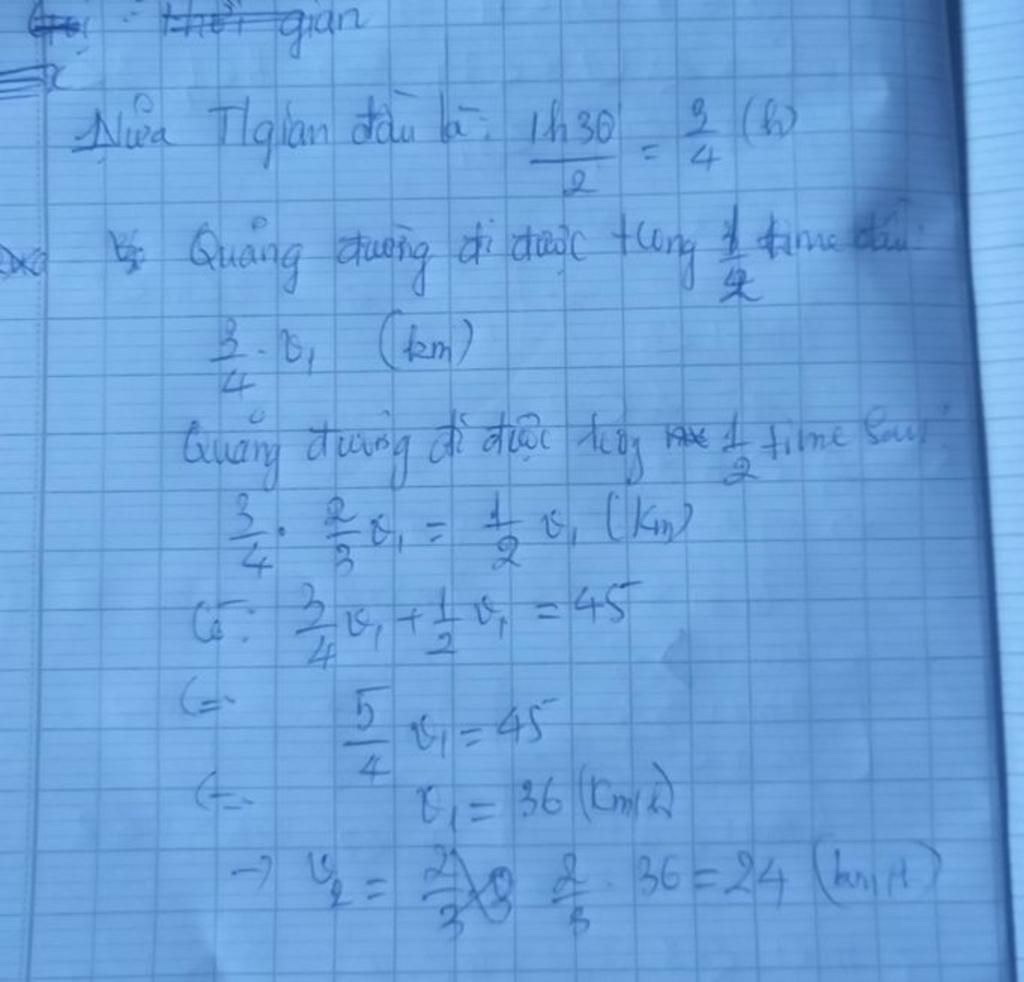 gian
Nửa Tlgian đầu là: 1h30/2 = 3/4 (h)
Quảng đường đi được trong 1/2 time đầu:
3/4 . v₁ (km)
Quảng đường đi được trog 1/2 time sau:
3/4 . 2/3 v₁ = 1/2 v₁ (km)
Có: 3/4 v₁ + 1/2 v₁ = 45
(=. 5/4 v₁ = 45
(=. v₁ = 36 (km/h)
→ v₂ = 2/3 . 36 = 24 (km/h)